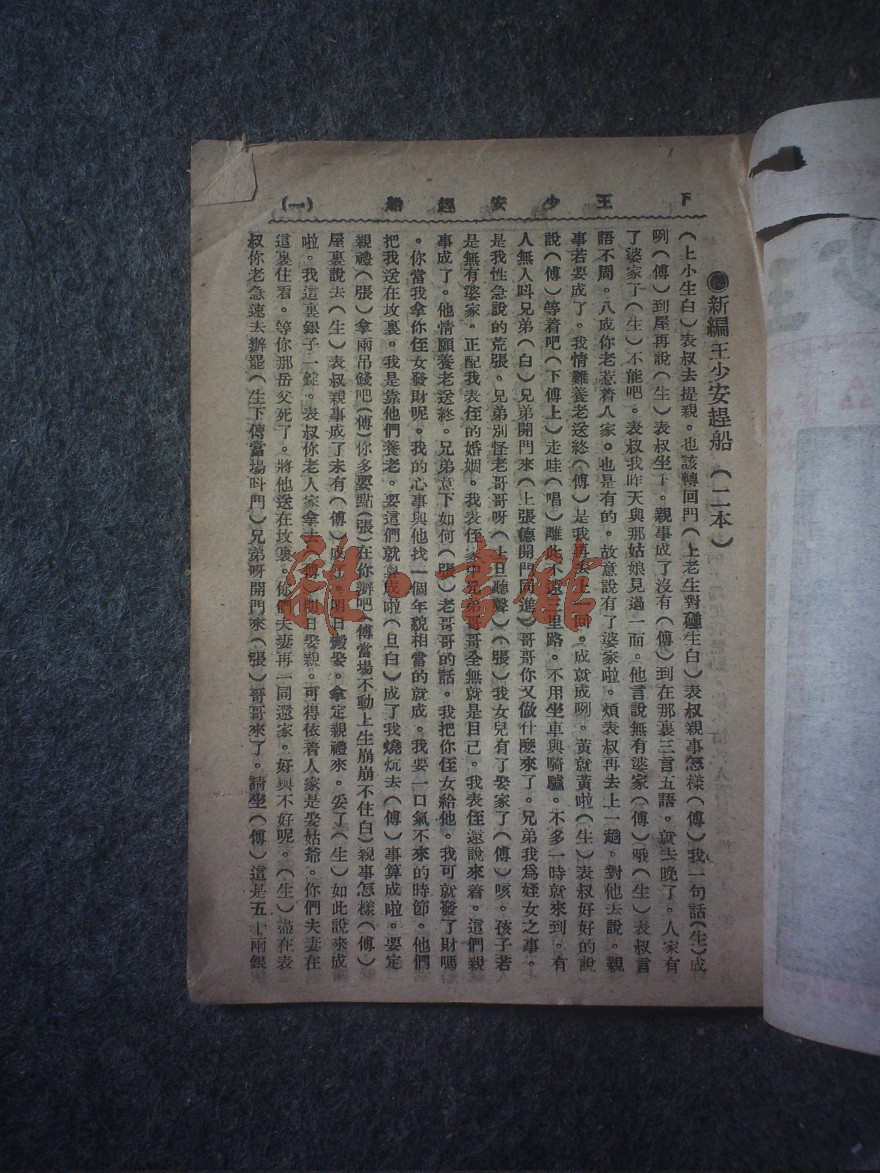 下 王少安趕船 (一)
●新編王少安趕船(二本)
(上小生白)表叔去提親。也該轉回門(上老生對碰生白)表叔親事怎樣(傅)我一句話(生)成
咧(傅)到屋再說(生)表叔坐下。親事成了沒有(傅)到在那裏三言五語。就去晚了。人家有
了婆家了(生)不能吧。表叔我昨天與那姑娘見過一面。他言說無有婆家(傅)哦(生)表叔言
語不周。八成你老惹着人家。也是有的。故意說有了婆家啦。煩表叔再去上一趟。對他去說。親
事若要成了。我情難養老送終(傅)是我再去上一回。成就成咧。黃就黃啦(生)表叔好好的說
說(傅)等着吧(下傅上)走哇(唱)離此不遠三里路。不用坐車與騎驢。不多一時就來到。有
人無人叫兄弟(白)兄弟開門來(上張德開門同進)哥哥你又做什麼來了。兄弟我爲姪女之事。
是我性急說的荒張。兄弟別怪老哥哥呀(上旦聽聲)(張)我女兒有了娶家了(傅)咳。孩子若
是無有婆家。正配我表侄的婚姻。我表侄家中兄弟哥哥全無就是自己。我表侄還說來着。這們親
事成了。他情願養老送終。兄弟意下如何(張)老哥哥的話。我把你侄女給他。我可就發了財嗎
。你當我拿你侄女發財呢。我的心事與他找一個年貌相當的就成。我要一口氣不來的時節。他們
把我送在坟裏。我是靠他們養老。要這們就算成啦(旦白)成了我燒炕去(傅)事算成啦。要定
親禮(張)拿兩吊錢吧(傅)你多要點(張)在你辦吧(傅當場不動上生崩崩不住白)親事怎樣(傅)
屋裏說去(生)表叔親事成了未有(傅)成好。明日搬娶。拿定親禮來。妥了(生)如此說來成
啦。我這裏銀子一錠。表叔你老人家拿去(傅)明日娶親。可得依着人家是娶姑爺。你們夫妻在
這裏住着。等你那岳父死了。將他送在坟裏。你們夫妻再一同還家。好與不好呢。(生)盡在表
叔你老急速去辦罷(生下傅當場叫門)兄弟呀開門來(張)哥哥來了。請坐(傅)這是五十兩銀